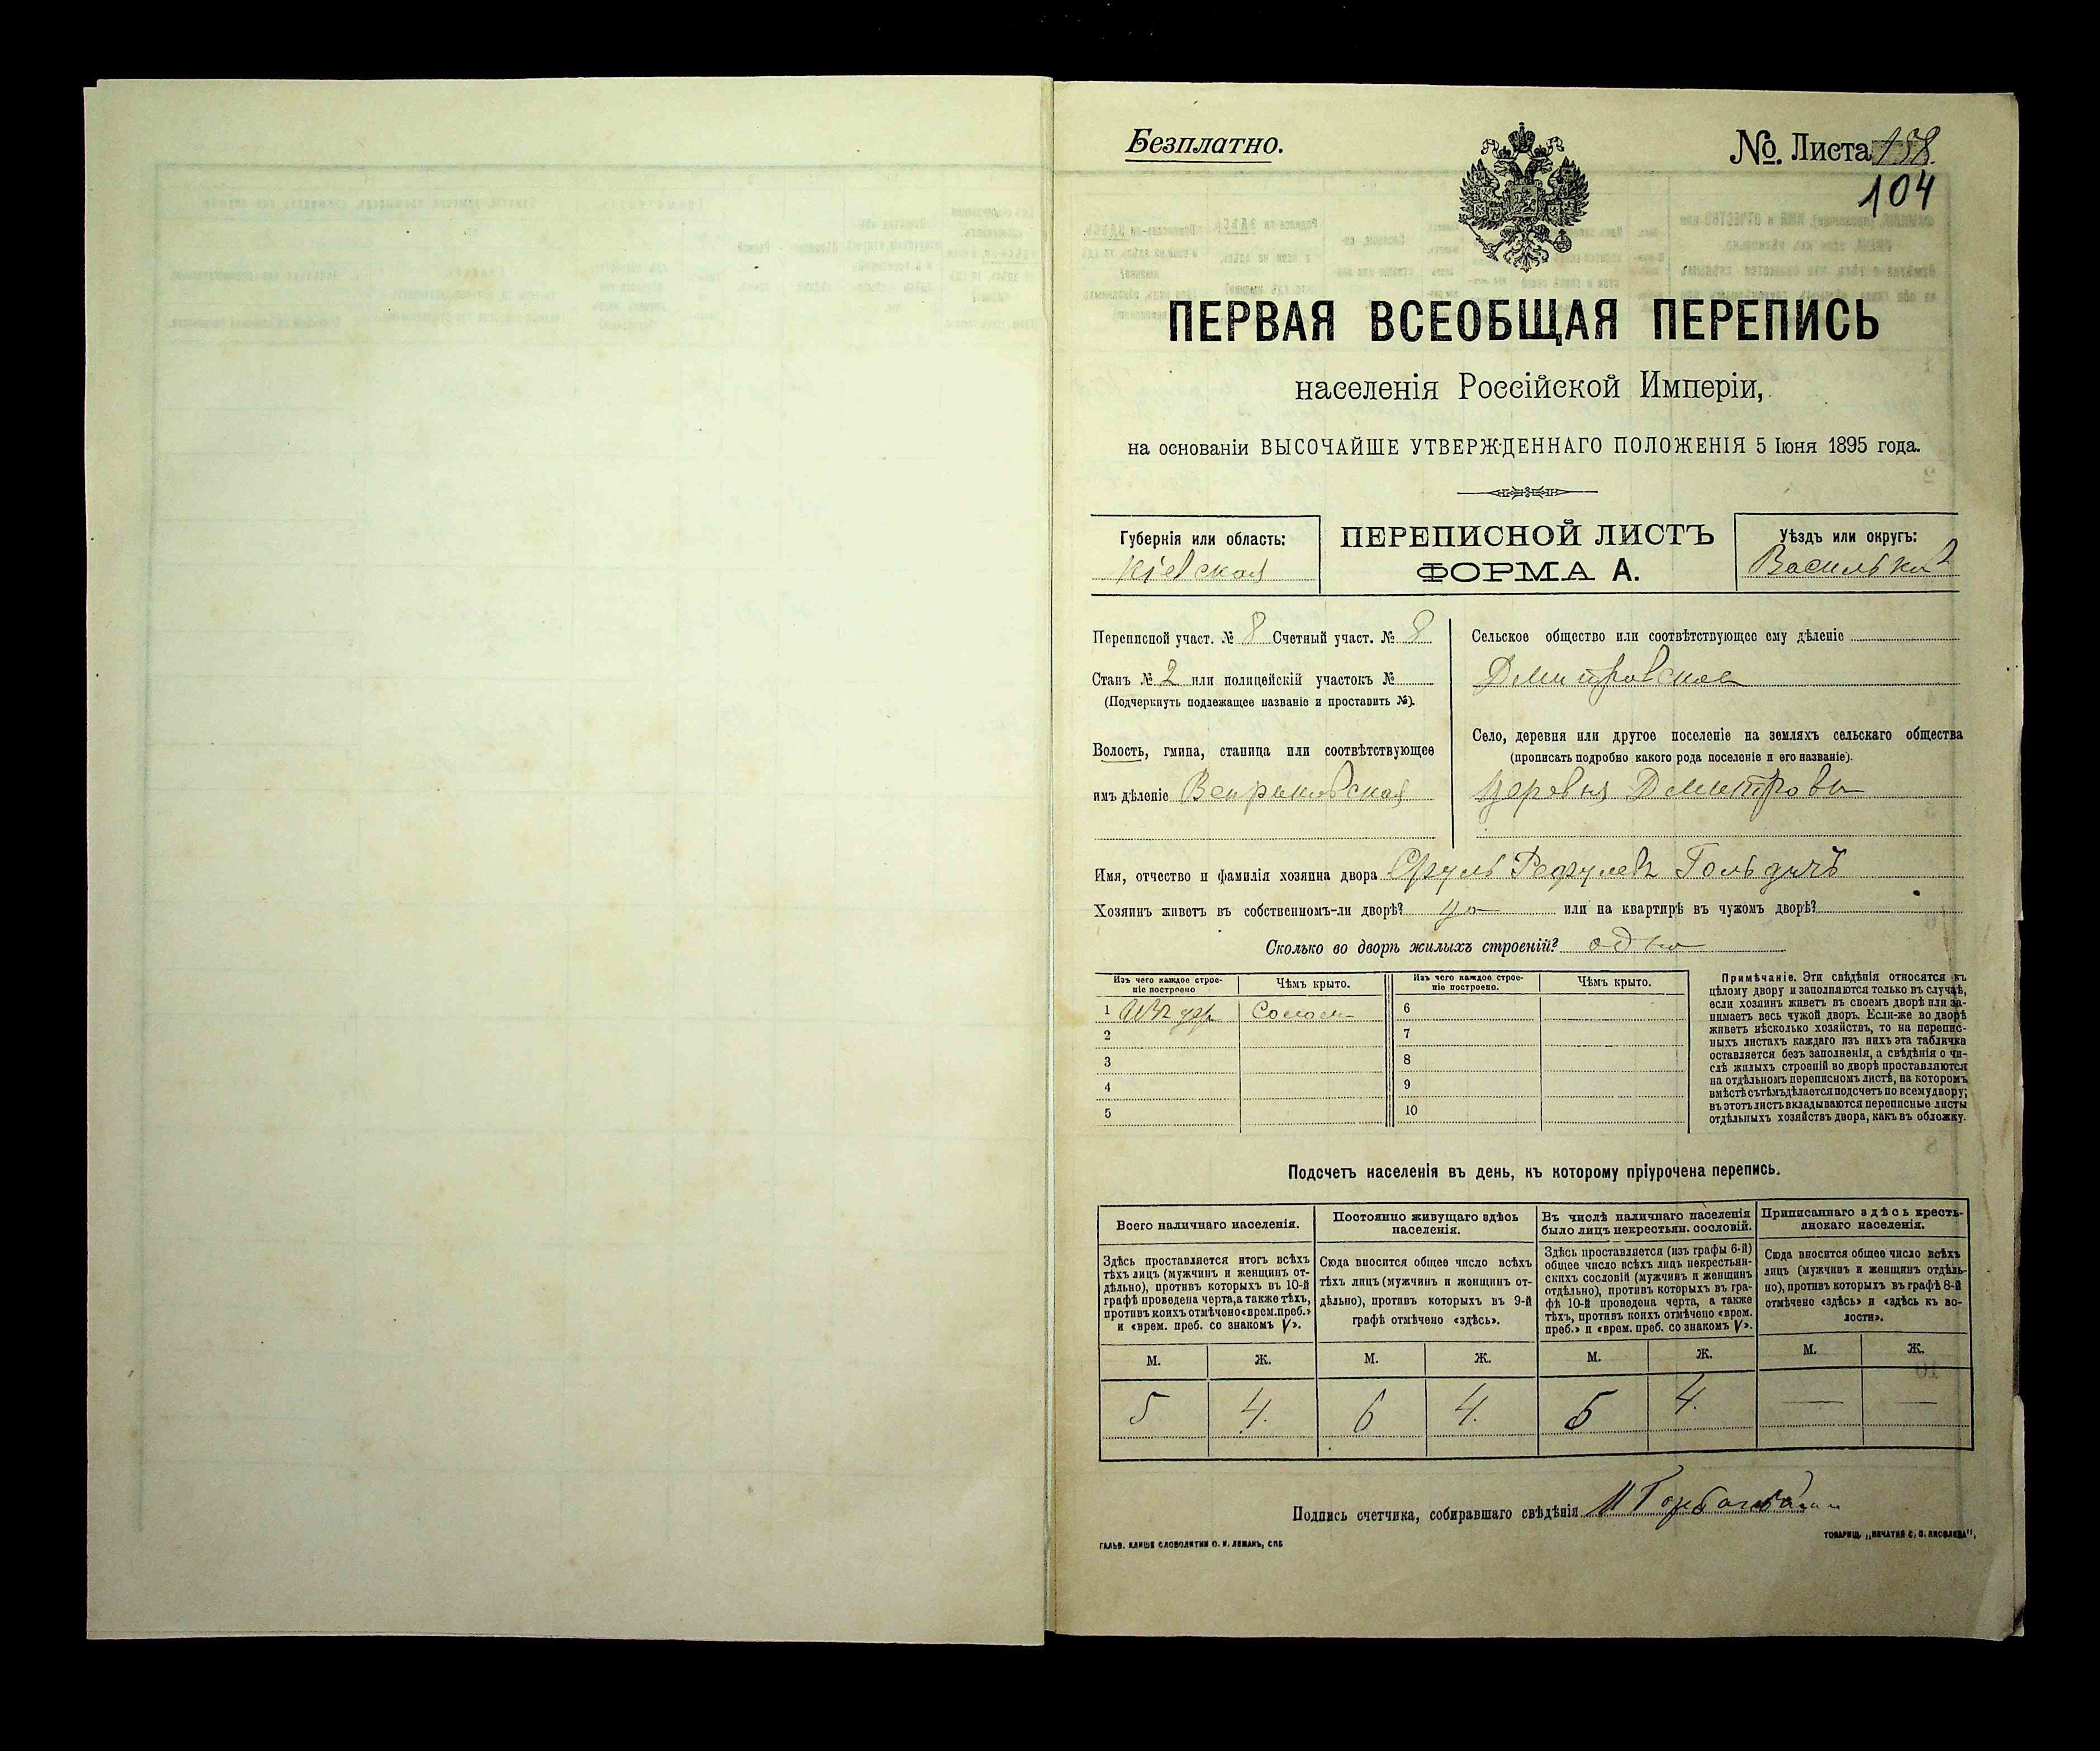 Безплатно.
№. Листа 138.
104
ПЕРВАЯ ВСЕОБЩАЯ ПЕРЕПИСЬ
населенія Россійской Имперіи,
на основаніи ВЫСОЧАЙШЕ УТВЕРЖДЕННАГО ПОЛОЖЕНІЯ 5 Іюня 1895 года.
Губернія или область:
Кіевская
ПЕРЕПИСНОЙ ЛИСТЪ
ФОРМА А.
Уѣздъ или округъ:
Переписной участ. № 8 Счетный участ. № 8
Станъ № 2 или полицейскій участокъ №
(Подчеркнуть подлежащее названіе и проставить №).
Волость, гмина, станица или соотвѣтствующее
имъ дѣленіе
Сельское общество или соотвѣтствующее ему дѣленіе
Дмитровское
Село, деревня или другое поселеніе на земляхъ сельскаго общества
(прописать подробно какого рода поселеніе и его названіе).
деревня Дмитровка
Имя, отчество и фамилія хозяина двора Сруль
Хозяинъ живетъ въ собственномъ-ли дворѣ? да или на квартирѣ въ чужомъ дворѣ?
Сколько во дворѣ жилыхъ строеній? одно
Изъ чего каждое строе-
ніе построено
Чѣмъ крыто.
Изъ чего каждое строе-
ніе построено.
Чѣмъ крыто.
1 Изъ дер. Солом.
2
3
4
5
6
7
8
9
10
Примѣчаніе. Эти свѣдѣнія относятся къ
цѣлому двору и заполняются только въ случаѣ,
если хозяинъ живетъ въ своемъ дворѣ или за-
нимаетъ весь чужой дворъ. Если-же во дворѣ
живетъ нѣсколько хозяйствъ, то на перепис-
ныхъ листахъ каждаго изъ нихъ эта табличка
оставляется безъ заполненія, а свѣдѣнія о чи-
слѣ жилыхъ строеній во дворѣ проставляются
на отдѣльномъ переписномъ листѣ, на которомъ
вмѣстѣ съ тѣмъ дѣлается подсчетъ по всему двору;
въ этотъ листъ вкладываются переписные листы
отдѣльныхъ хозяйствъ двора, какъ въ обложку.
Подсчетъ населенія въ день, къ которому пріурочена перепись.
Всего наличнаго населенія.
Постоянно живущаго здѣсь
населенія.
Въ числѣ наличнаго населенія
было лицъ некрестьян. сословій.
Приписаннаго здѣсь кресть-
янскаго населенія.
Здѣсь проставляется итогъ всѣхъ
тѣхъ лицъ (мужчинъ и женщинъ от-
дѣльно), противъ которыхъ въ 10-й
графѣ проведена черта, а также тѣхъ,
противъ коихъ отмѣчено «врем. преб.»
и «врем. преб. со знакомъ V».
Сюда вносится общее число всѣхъ
тѣхъ лицъ (мужчинъ и женщинъ от-
дѣльно), противъ которыхъ въ 9-й
графѣ отмѣчено «здѣсь».
Здѣсь проставляется (изъ графы 6-й)
общее число всѣхъ лицъ некрестьян-
скихъ сословій (мужчинъ и женщинъ
отдѣльно), противъ которыхъ въ гра-
фѣ 10-й проведена черта, а также
тѣхъ, противъ коихъ отмѣчено «врем.
преб.» и «врем. преб. со знакомъ V».
Сюда вносится общее число всѣхъ
лицъ (мужчинъ и женщинъ отдѣль-
но), противъ которыхъ въ графѣ 8-й
отмѣчено «здѣсь» и «здѣсь къ во-
лости».
М. Ж. М. Ж. М. Ж. М. Ж.
5 4. 6 4. 5 4. — —
Подпись счетчика, собиравшаго свѣдѣнія
ГАЛЬВ. КЛИШЕ СЛОВОЛИТНИ О. И. ЛЕМАНЪ, СПБ
ТОВАРИЩ. „ПЕЧАТНЯ С. П. ЯКОВЛЕВА",